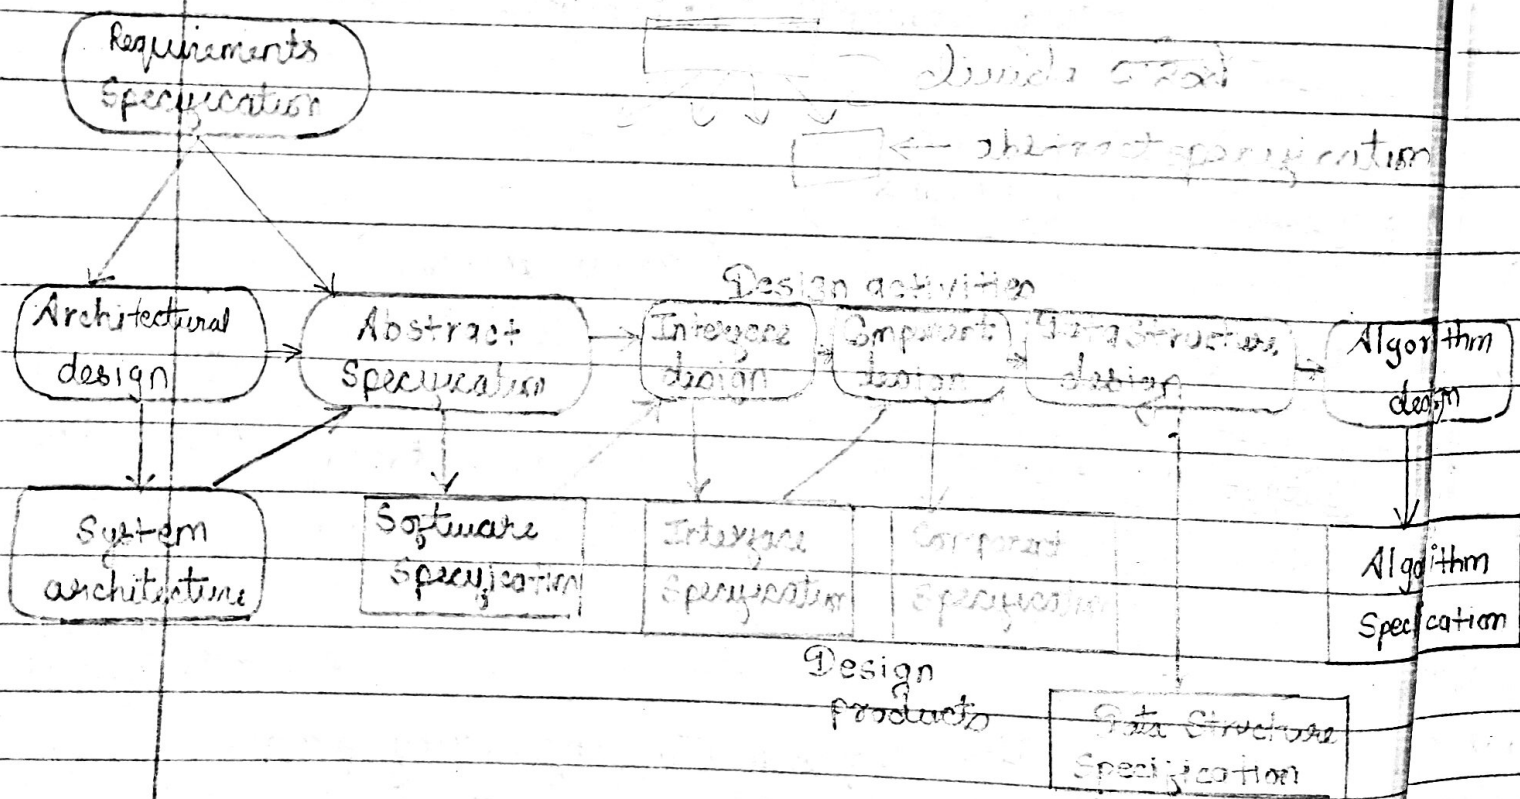 Requirements
Specification
Design activities
Architectural
design
Abstract
Specification
Interface
design
Component
design
Data Structure
design
Algorithm
design
System
architecture
Software
Specification
Interface
Specification
Component
Specification
Algorithm
Specification
Design
products
Data Structure
Specification